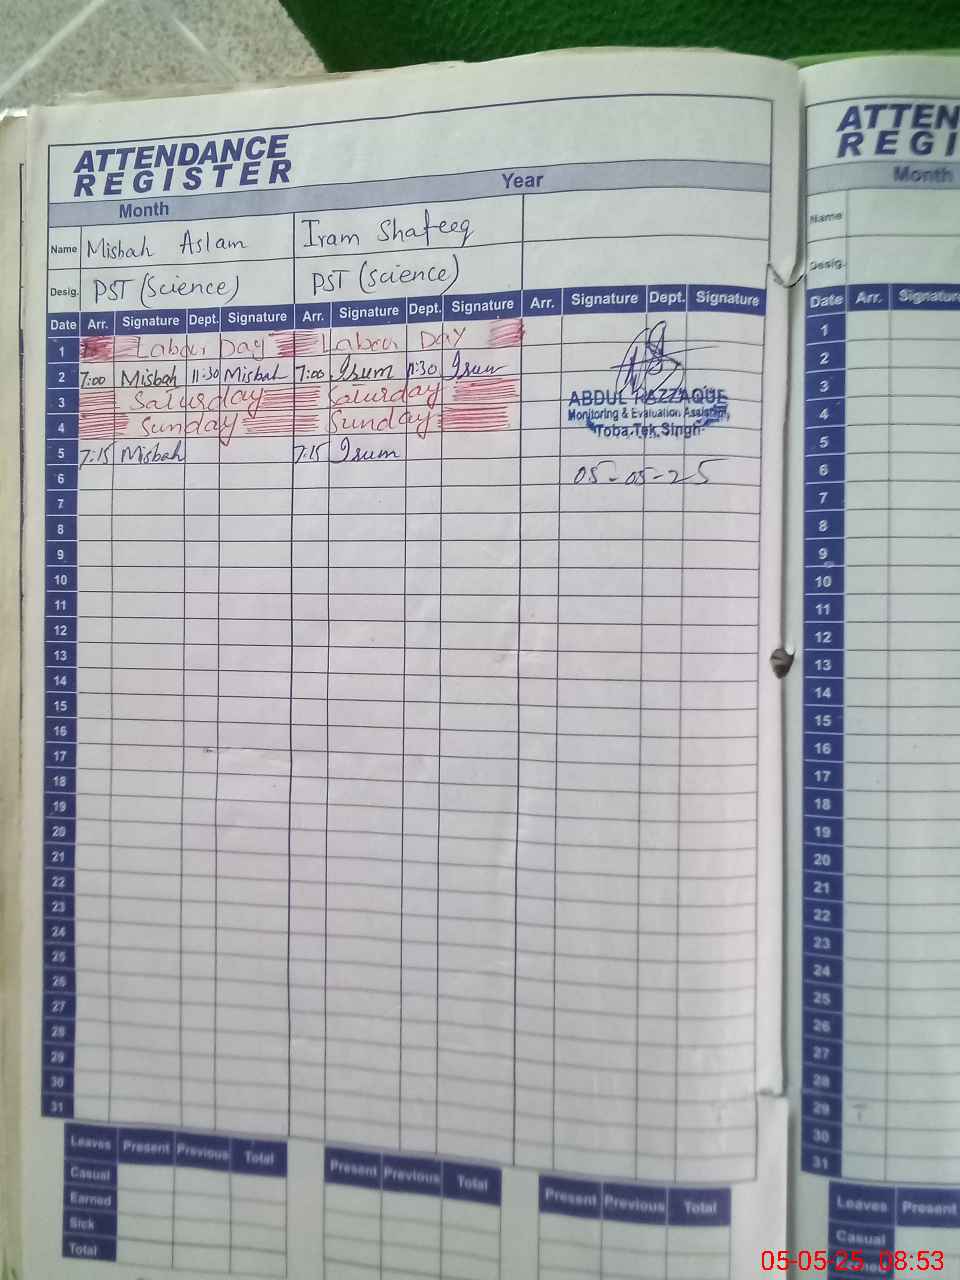 ATTENDANCE
REGISTER
Month Year
Name Misbah Aslam Iram Shafeeq
Desig. PST (Science) PST (Science)
Date Arr. Signature Dept. Signature Arr. Signature Dept. Signature Arr. Signature Dept. Signature
1 Labour Day Labour DAY
2 7:00 Misbah 11:30 Misbah 7:00 Irum 11:30 Irum
3 Saturday Saturday
4 Sunday Sunday
5 7:15 Misbah 7:15 Irum
6
7
8
9
10
11
12
13
14
15
16
17
18
19
20
21
22
23
24
25
26
27
28
29
30
31
ABDUL RAZZAQUE
Monitoring & Evaluation Assistant,
Toba Tek Singh
05-05-25
Leaves Present Previous Total Present Previous Total Present Previous Total
Casual
Earned
Sick
Total
ATTEN
REGI
Month
Name
Desig.
Date Arr. Signature
1
2
3
4
5
6
7
8
9
10
11
12
13
14
15
16
17
18
19
20
21
22
23
24
25
26
27
28
29
30
31
Leaves Present
Casual
05-05-25 08:53